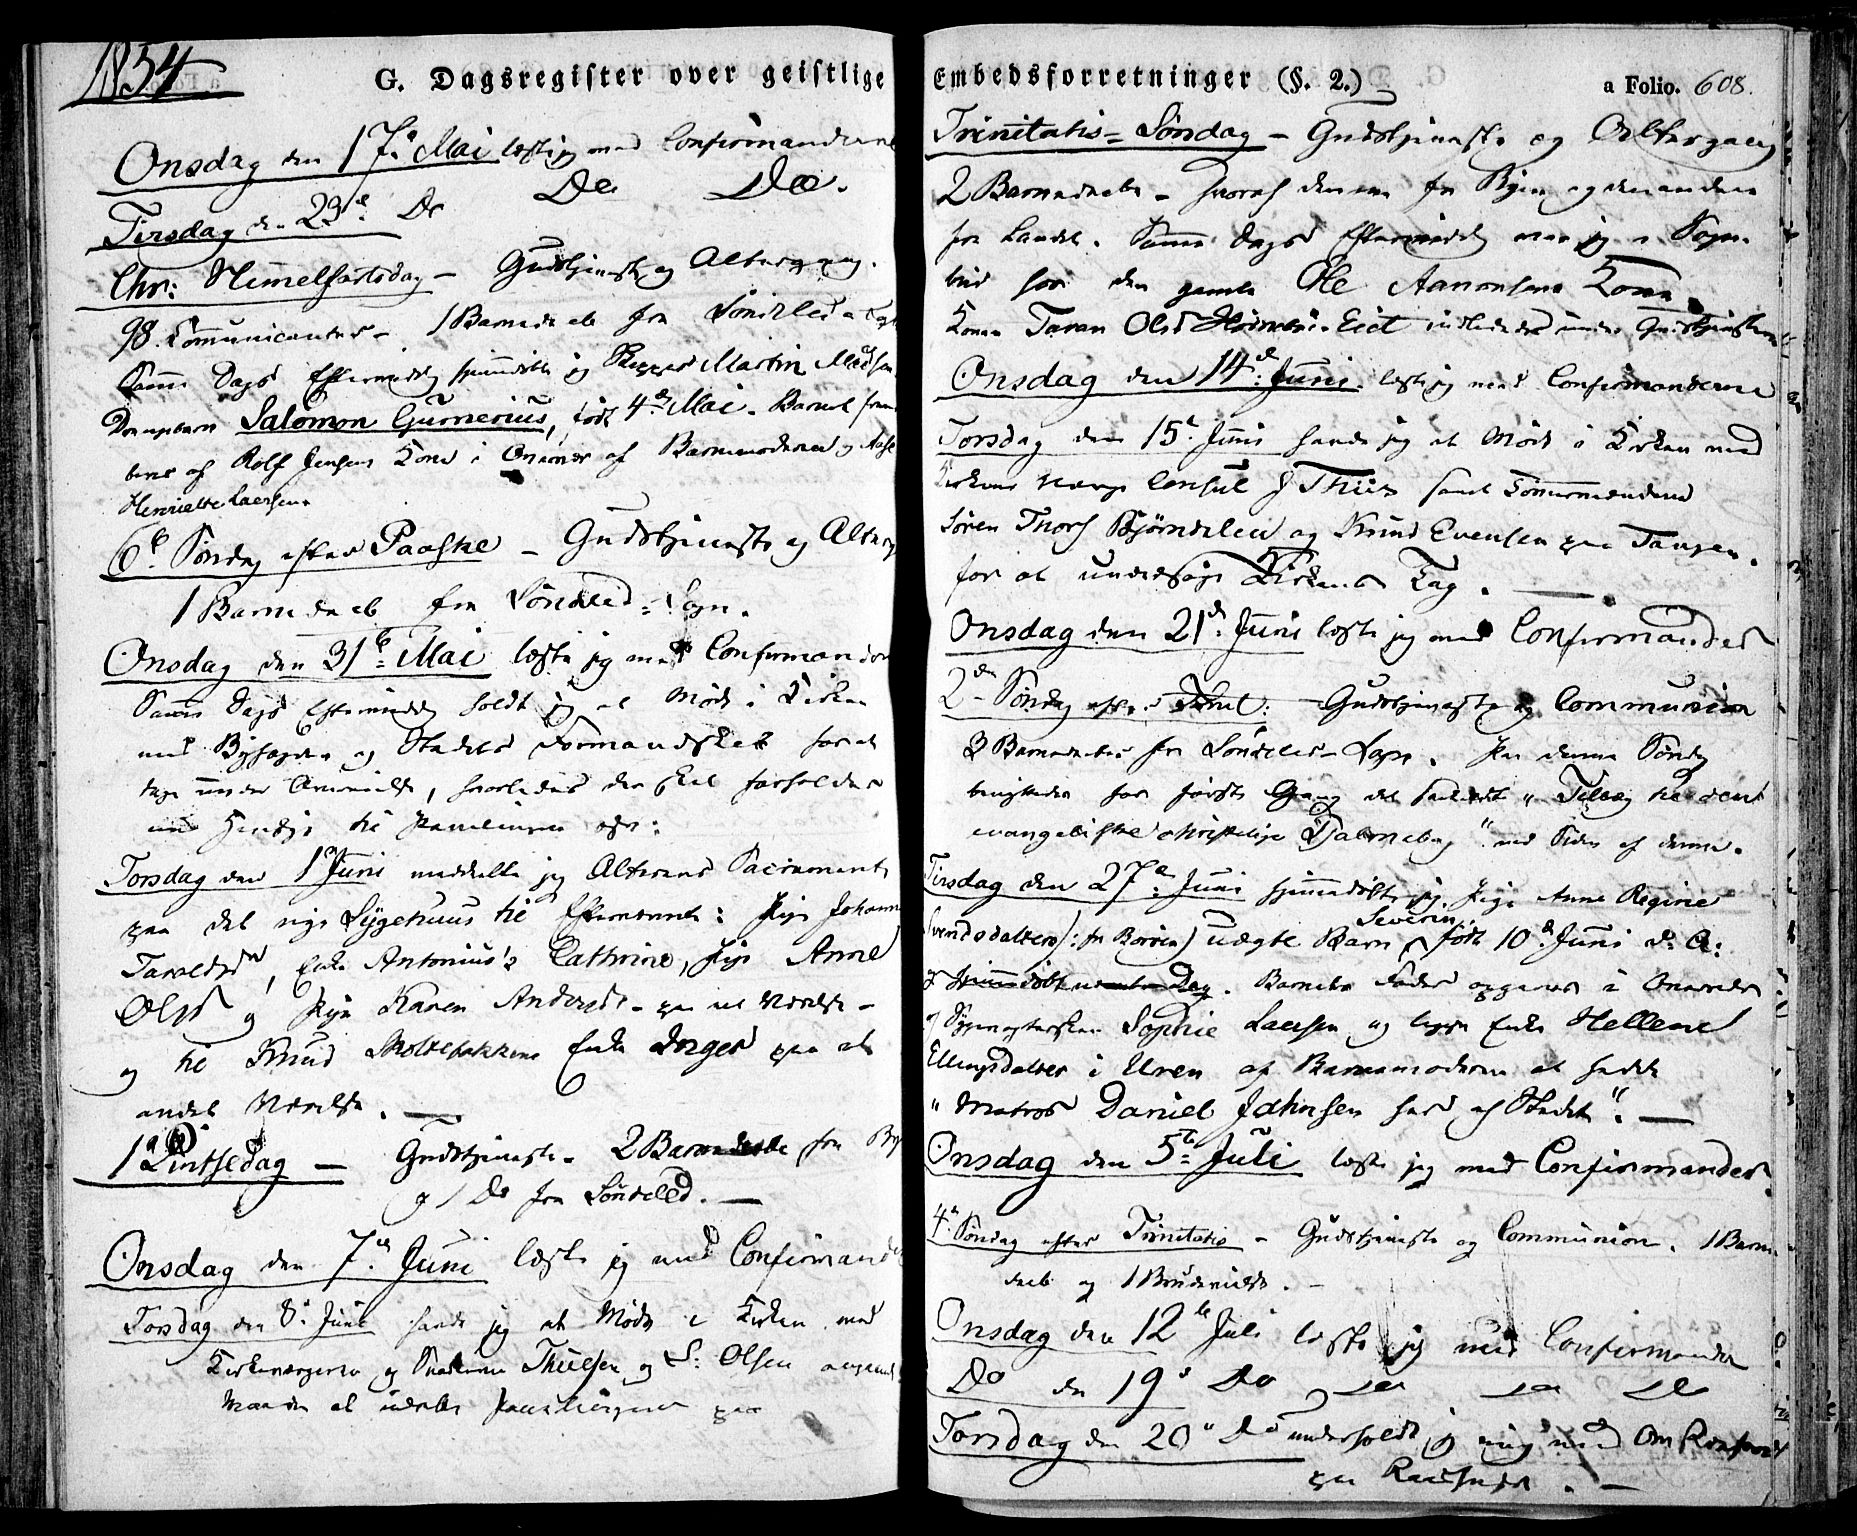 1854
G. Dagsregister over geistlige
Onsdag den 17de Mai læste jeg med Confirmanderne
Tirsdag den 23de Do Do Do.
Chr: Himmelfartsdag – Gudstjeneste og Altergang.
98 Communicantes – 1 Barnedaab fra Søndeled
Samme Dags Eftermiddag hjemmedøbte jeg Martin Madsen
Drengebarn Salomon Gunerius, født 4de Mai. Barnet frem
af Rolf Jensens Kone i af Barnemoderen og
Henriette Laersen.
6te Søndag efter Paaske – Gudstjeneste og Alterg
1 Barnedaab fra Søndeled-Sogn.
Onsdag den 31te Mai læste jeg med Confirmander
Samme Dags Eftermiddag holdt jeg et Møde i Kirken
med Byfogden og Stadets Formandskab for at
tage under, hvorledes der skal forholdes
med Hensyn til
Torsdag den 1 Juni meddelte jeg Alterens Sacramente
paa det nye Sygehuus til Efternævnte: Pige Johanne
Taraldsd, Enke Antonius's Cathrine, Pige Anne
Olsd og Pige Karen Andersd – paa et Værelse –
og til Knud Enke Inger paa et
andet Værelse. —
1ste Pintsedag — Gudstjeneste. 2 Barnedaab fra By
og 1 Do fra Søndeled. —
Onsdag den 7de Juni læste jeg med Confirmand
Torsdag den 8de Juni havde jeg et Møde i Kirken med
Kirkeværgerne og Thuesen og S: Olsen
paa
Embedsforretninger (§. 2.)
a Folio. 608.
Trinitatis-Søndag – Gudstjeneste og Altergang
2 Barnedaab – hvoraf den ene fra Byen og den anden
fra Landet. Samme Dags Eftermiddag var jeg i Sogne
bud hos den gamle Ole Aanonsens Kone.
Konen Taran Olsd indledet under Gudstjenesten
Onsdag den 14de Juni læste jeg med Confirmanderne
Torsdag den 15de Juni havde jeg et Møde i Kirken med
Kirkens Værge Consul J Thiis samt Tømmermændene
Søren Thors Bjørndalen og Knud Evensen paa Tangen.
for at undersøge Kirkens Tag. —
Onsdag den 21de Juni læste jeg med Confirmander
2den Søndag efter – Gudstjeneste og Communion
3 Barnedaab fra Søndeled-Sogn. Paa denne Søndag
benyttedes for første Gang det saakaldte „Tillæg til den
evangeliske christelige Psalmebog“ ved Siden af denne.
Tirsdag den 27de Juni hjemmedøbte jeg Pige Anne Regine
Svendsdatters /: fra uægte Barn Severin født 10de Juni d: A:
Dag. Barnets Fader opgaves i Overvær
af Sophie Laersen og Enke Hellene
Ellingsdatter i Uren af Barnemoderen at hedde
„Matros Daniel Johnsen her af Stedet“. —
Onsdag den 5te Juli læste jeg med Confirmander.
4de Søndag efter Trinitatis – Gudstjeneste og Communion. 1 Barne
daab og 1 Brudevielse. –
Onsdag den 12te Juli læste jeg med Confirmander
Do den 19de Do Do Do Do
Torsdag den 20de Do underholdt jeg mig med
paa Raadhuset. —